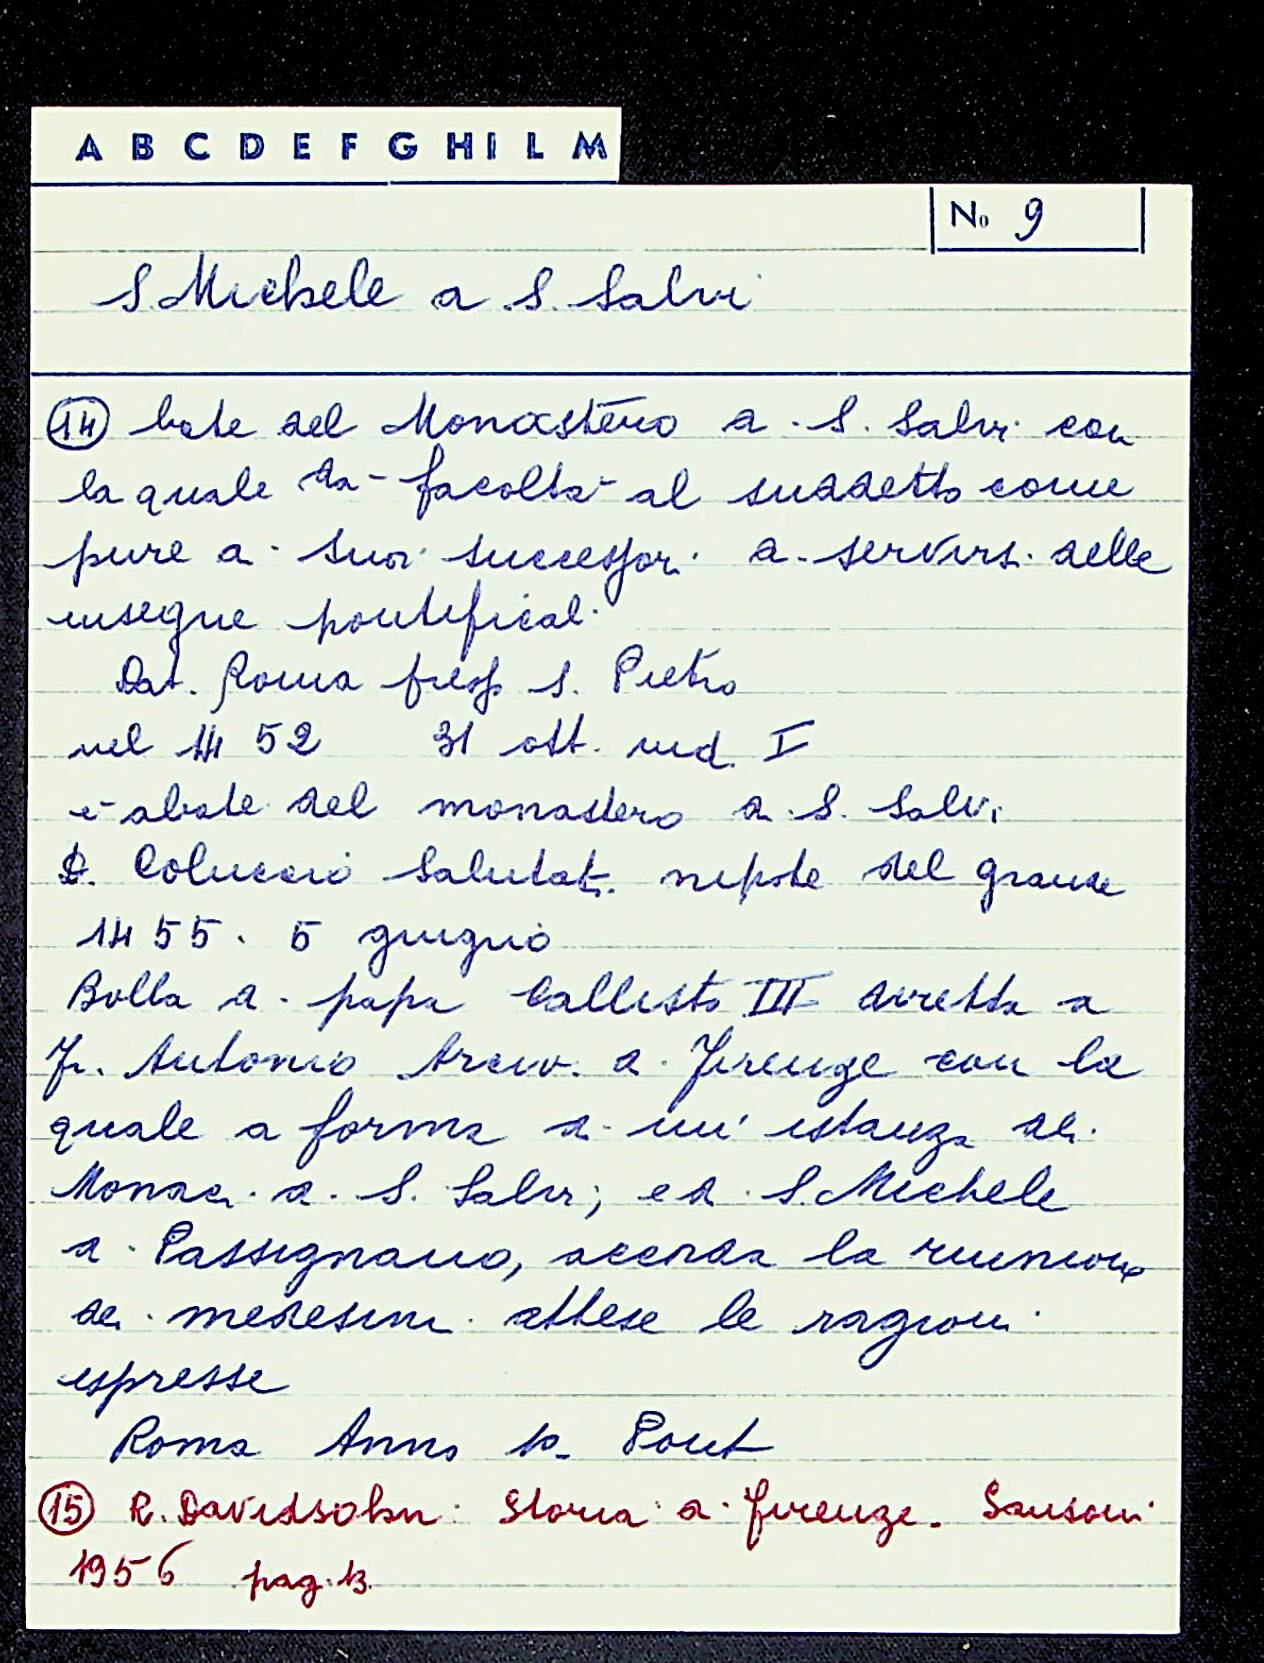 A B C D E F G H I L M
No 9
S. Michele a S. Salvi
14 bate del Monastero di S. Salvi con
la quale dà facoltà al suddetto come
pure a suoi successori di servirsi delle
insegne pontificali
Dat. Roma presso S. Pietro
nel 1452 31 ott. ind. I
è abate del monastero di S. Salvi
D. Coluccio Salutati nipote del grande
1455. 5 giugno
Bolla di papa Callisto III diretta a
Fr. Antonio Arciv. di Firenze con la
quale a forma di un' istanza dei
Monaci di S. Salvi, e di S. Michele
di Passignano, accorda la riunione
dei medesimi attese le ragioni
espresse
Roma Anno Pont
15 R. Davidsohn: Storia di Firenze. Sansoni
1956 pag. 13.